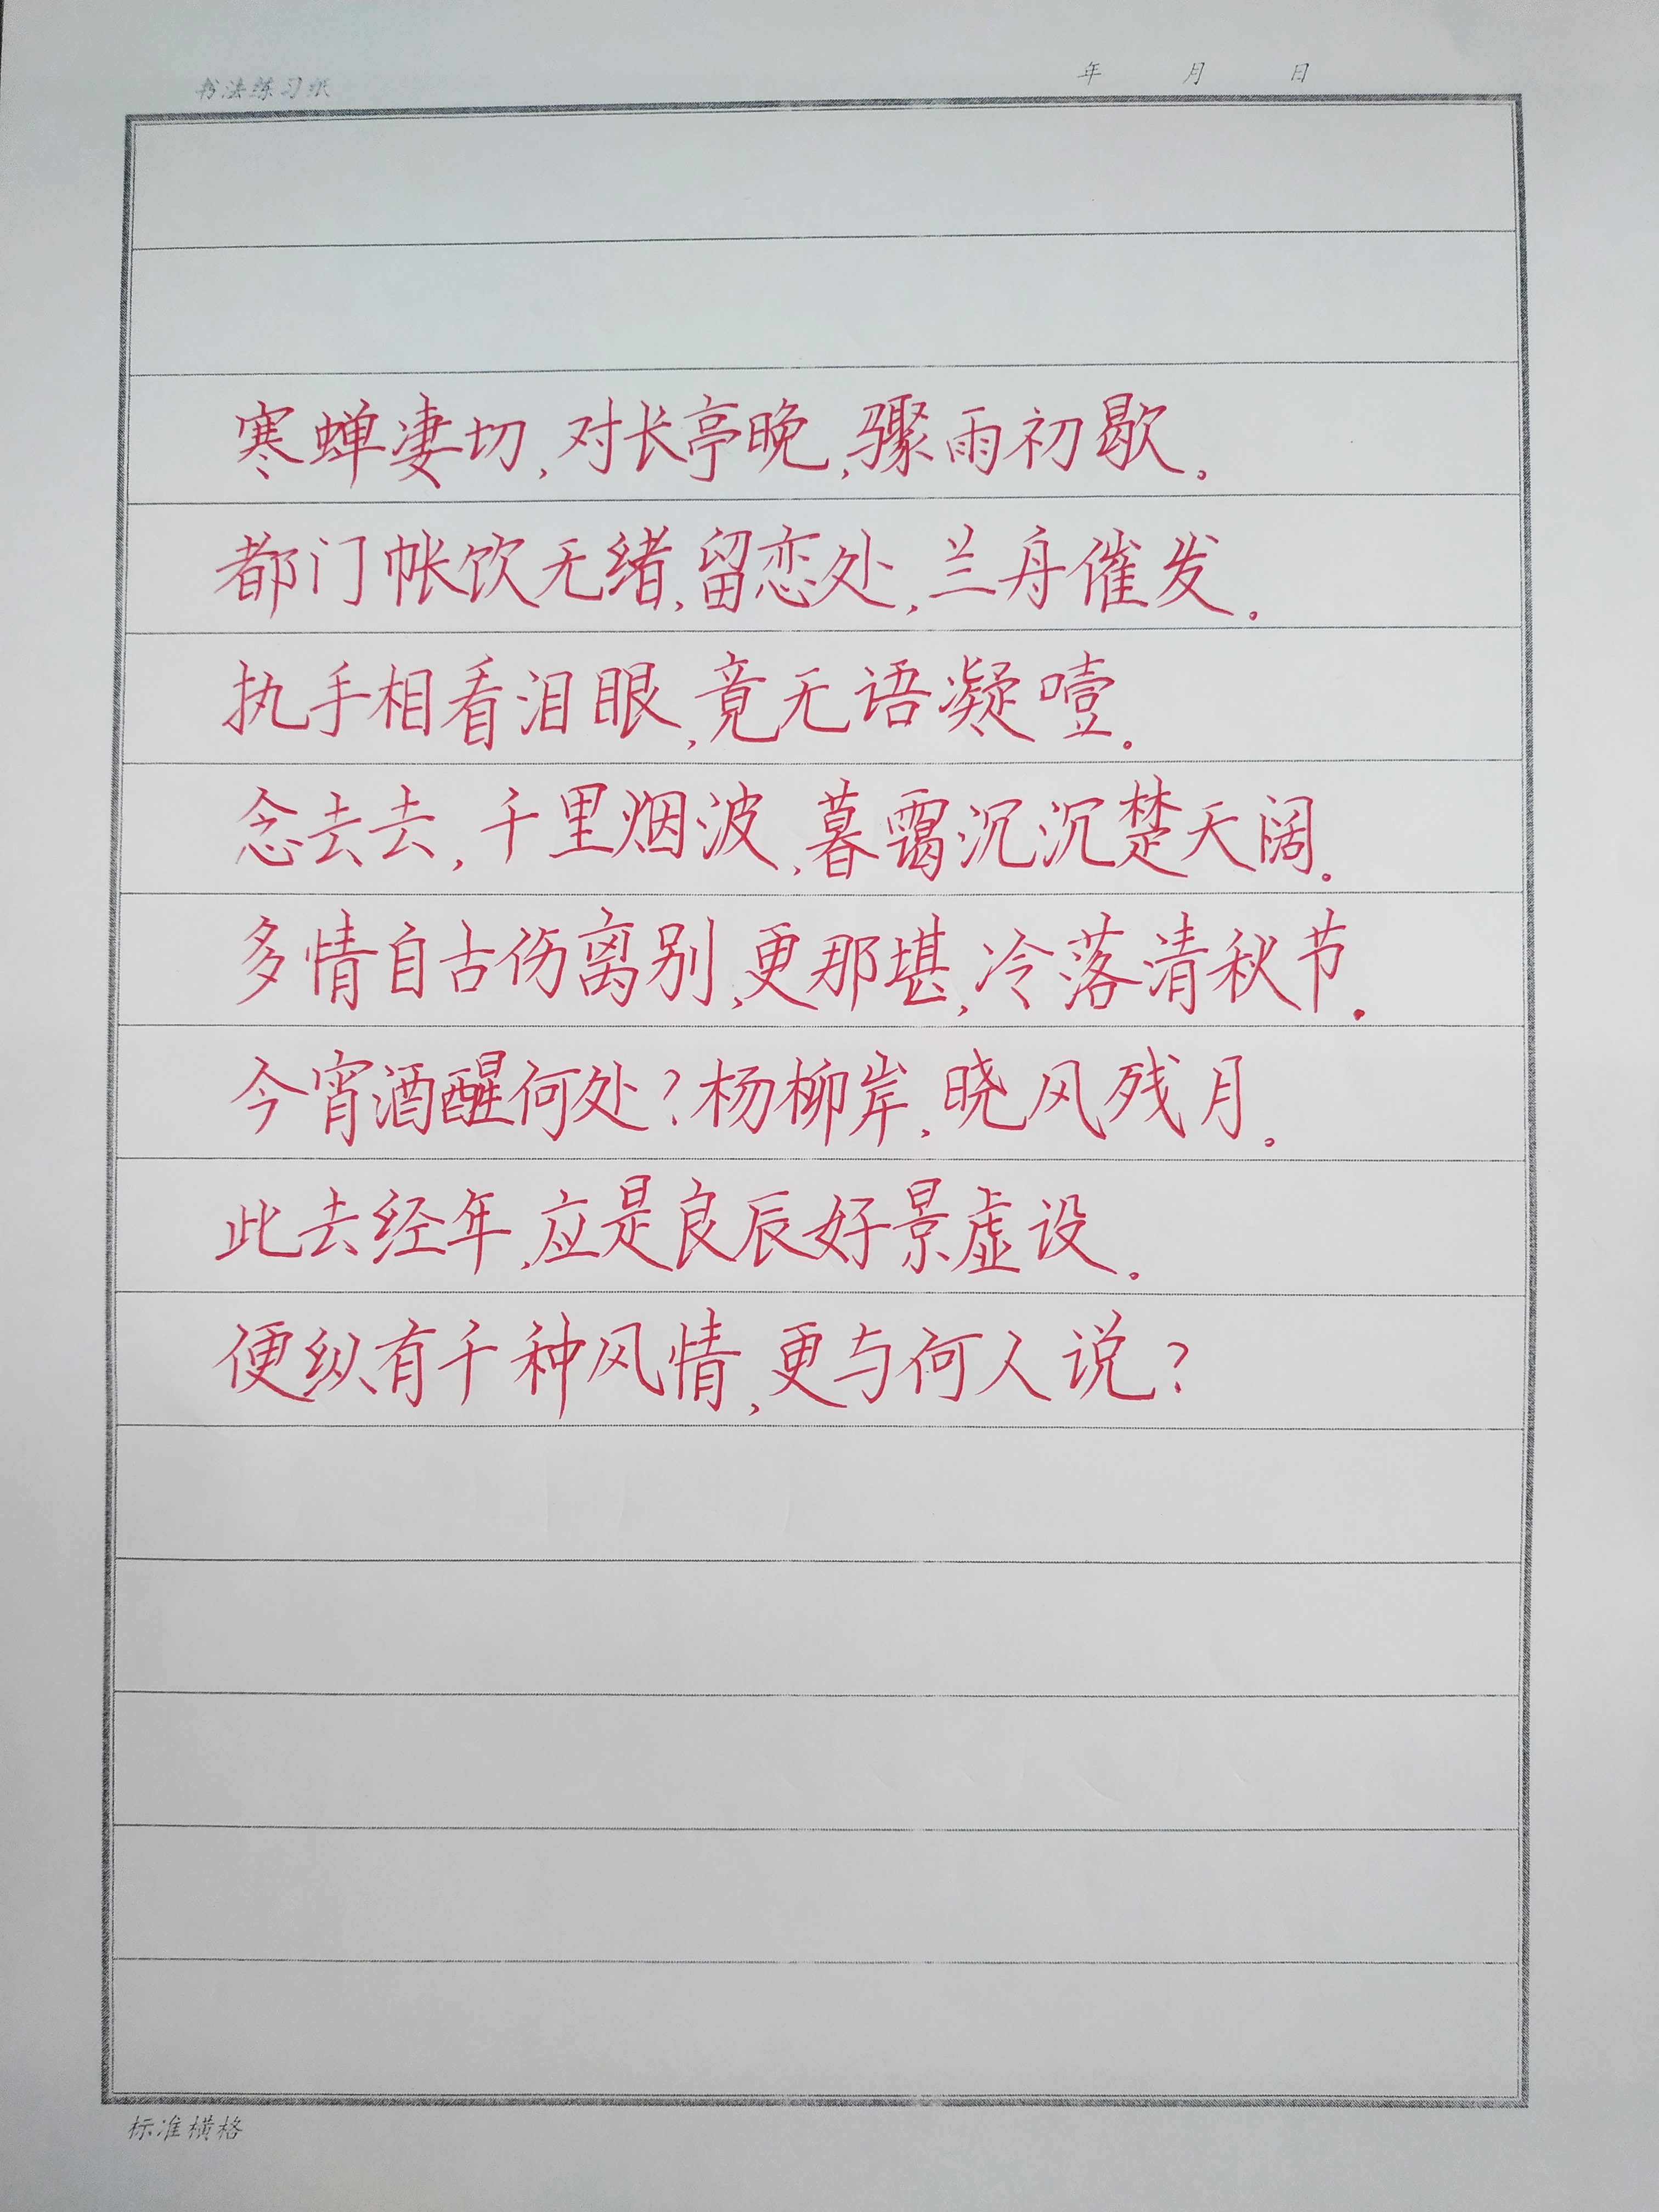 书法练习纸 年 月 日
寒蝉凄切,对长亭晚,骤雨初歇。
都门帐饮无绪,留恋处,兰舟催发。
执手相看泪眼,竟无语凝噎。
念去去,千里烟波,暮霭沉沉楚天阔。
多情自古伤离别,更那堪,冷落清秋节。
今宵酒醒何处?杨柳岸,晓风残月。
此去经年,应是良辰好景虚设。
便纵有千种风情,更与何人说?
标准横格